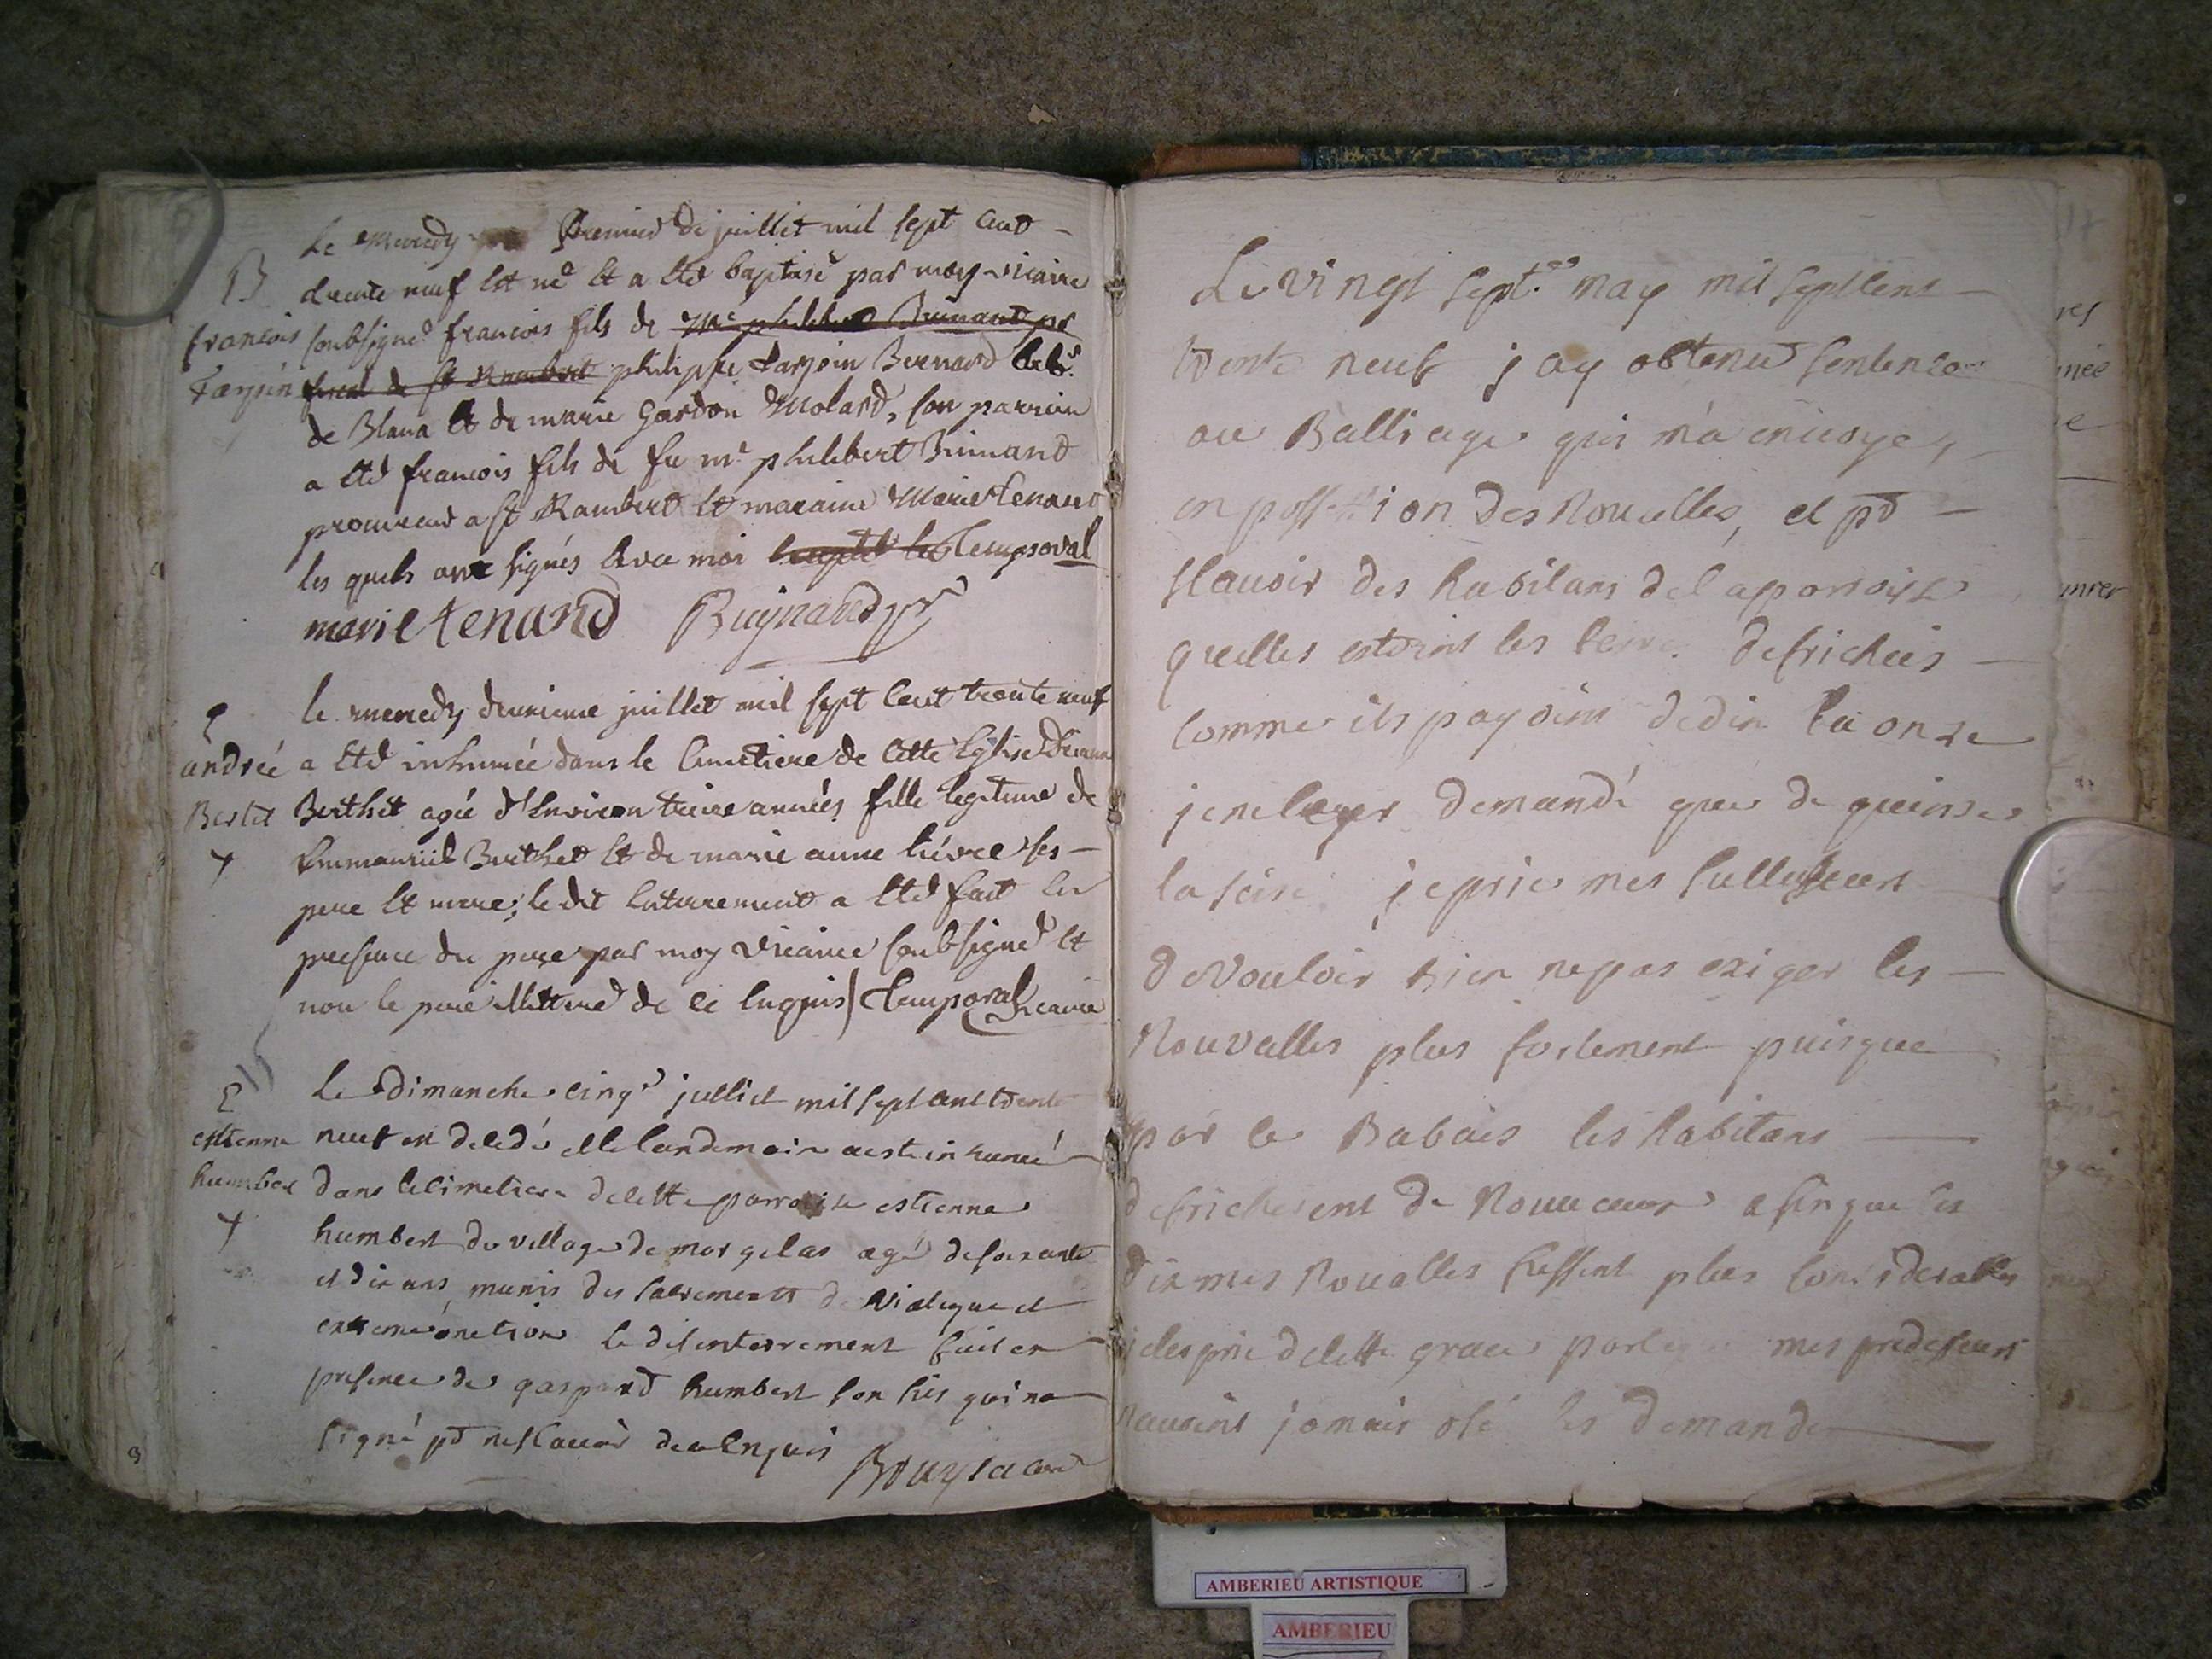 Le mercredy premier de juillet mil sept cent
B
trente neuf est né et a eté baptisé par moy vicaire
francois soubsigné francois fils de Me philibert Buinand pr
Tarpin fiscal de st Rambert philippe Tarpin Bernard
de Blana et de marie Gardon Molard, son parrain
a eté francois fils de feu me philibert Buinand
procureur a st Rambert et maraine Marie tenand
les quels ont signés avec moi Temporal
marie tenand Buynand
le mercredy deuxieme juillet mil sept cent trente neuf
andrée a eté inhumée dans le cimetiere de cette Eglise
Bertet Berthet agée d'environ treize années fille legitime de
Emmanuel Berthet et de marie anne liévre ses
pere et mere; le dit enterrement a eté fait en
presence du pere par moy vicaire soubsigné et
non le pere illittere de ce enquis / Temporal vicaire
E
Le dimanche cinqe julliet mil sept cent trente
estienne neuf est decedé et le landemain a este inhumé
humbert dans le cimetiere de cette parroisse estienne
humbert du village de morgelas agé de soixante
et dix ans, munis des sacrements de viatique et
extreme onction le dit enterrement fait en
presence de gaspard humbert son fils qui na
signé pr ne scavoir de ce enquis
17
Le vingt sept.e may mil sept cens
trente neuf j ay obtenu sentence
au Balliage qui m'a envoyé
en possession des Novalles, et pr
scavoir des habitans de la parroisse
quelles estoint les terres defrichées
comme ils payoint de dix la onze
je ne leur demandé que de quinse
la seise je prie mes successeurs
de Vouloir bien ne pas exiger les
Nouvalles plus fortement puisque
par ce Rabais les habitans
defricherent de Nouveaux afin que les
dixmes Novalles fussent plus considerables
je les prie de cette grace mes predesseurs
navoint jamais osé les demander
AMBERIEU ARTISTIQUE
AMBERIEU